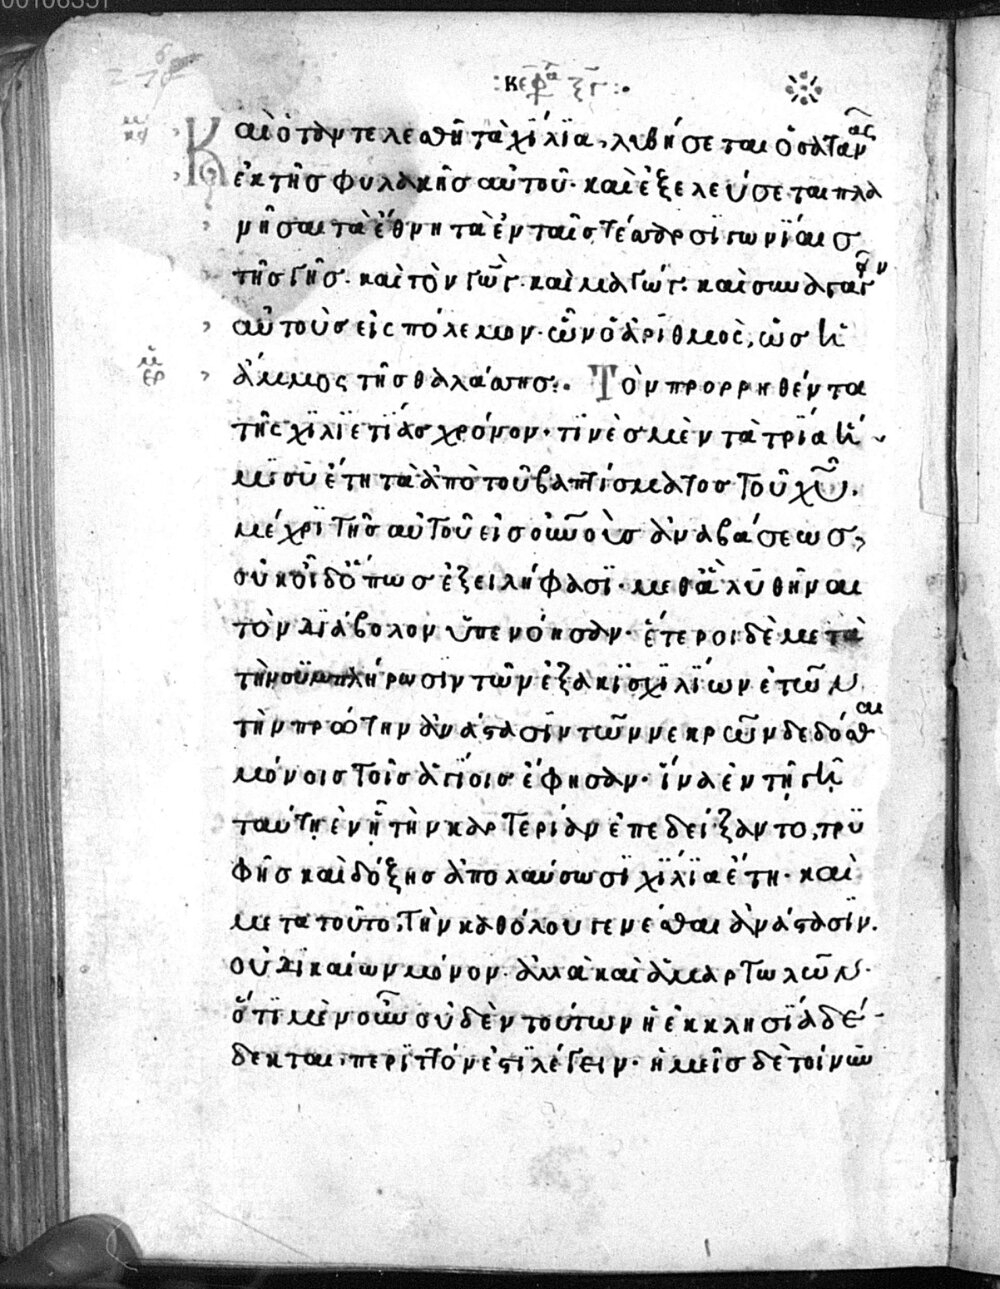 κεφα ξγ :·
Καὶ ὅταν τελεσθῇ τὰ χίλϊα, λυθήσεται ὁ σατανας
ἐκ τῆς φυλακῆς αὐτοῦ· καὶ ἐξελεύσεται πλα
νῆσαι τὰ ἔθνη τὰ ἐν ταῖς τέσσαρσϊ γωνΐαις
τῆς γῆς· καὶ τὸν γὼγ· καὶ μαγώγ· καὶ συναγαγεῖν
αὐτοὺς εἰς πόλεμον· ὧν ὁ ἀριθμὸς, ὡς ἡ
ἄμμος τῆς θαλάσσης:· Τὸν προρρηθέντα
τῆς χϊλϊετΐας χρόνον· τϊνὲς μὲν τὰ τρΐα ἥ
μϊσυ ἔτη τὰ ἀπὸ τοῦ βαπτίσματος τοῦ χυ,
μέχρϊ τῆς αὐτοῦ εἰς οὐνοὺς ἀναβάσεως,
οὐκ οἶδ ὅπως ἐξειλήφασϊ· μεθ ἃ λυθῆναι
τὸν δϊάβολον ὑπενόησαν· ἕτεροι δὲ μετὰ
τὴν συμπλήρωσϊν τῶν ἑξακϊσχϊλΐων ἐτῶν
τὴν πρώτην ἀνάστασϊν τῶν νεκρῶν δεδόσθαι
μόνοις τοῖς ἁγΐοις ἔφησαν· ἵνα ἐν τῇ γῇ
ταύτῃ ἐν ᾗ τὴν καρτερίαν ἐπεδείξαντο, τρυ
φῆς καὶ δόξης ἀπολαύσωσϊ χΐλϊα ἔτη· καὶ
μετα τοῦτο, τὴν καθόλου γενέσθαι ἀνάστασϊν.
οὐ δϊκαίων μόνον· ἀλλὰ καὶ ἁμαρτωλῶν·
ὅτϊ μὲν οὖν οὐδὲν τούτων ἡ ἐκκλησΐα δέ
δεκται, περϊττόν ἐστϊ λέγειν· ἡμεῖς δὲ τοίνυν